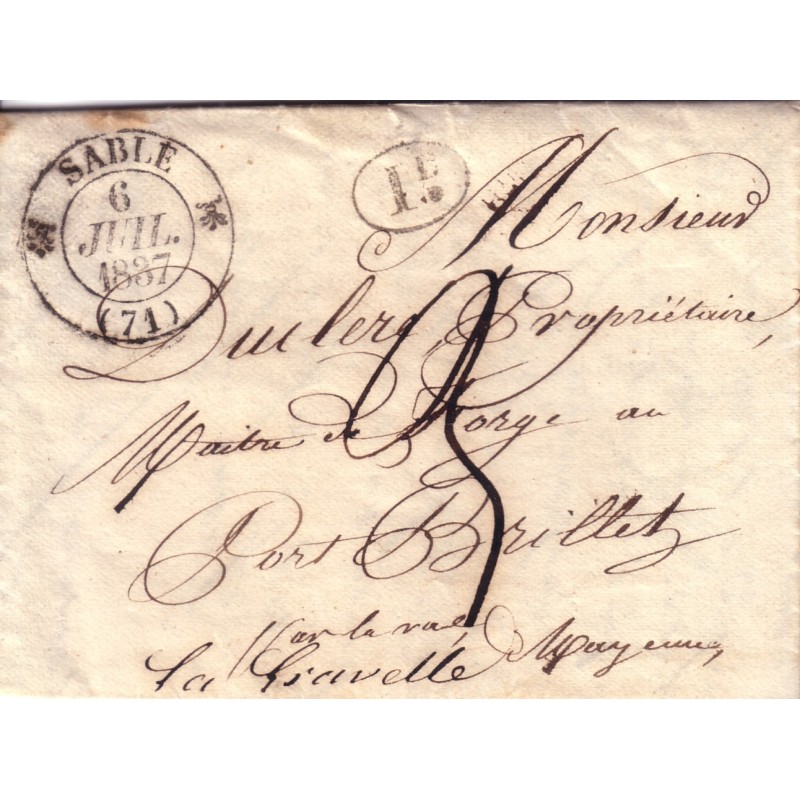 SABLÉ
6
JUIL.
1837
(71)
1D
Monsieur
Duclerc, Propriétaire,
Maitre de Forge au
Port Brillet
La Gravelle Mayenne,